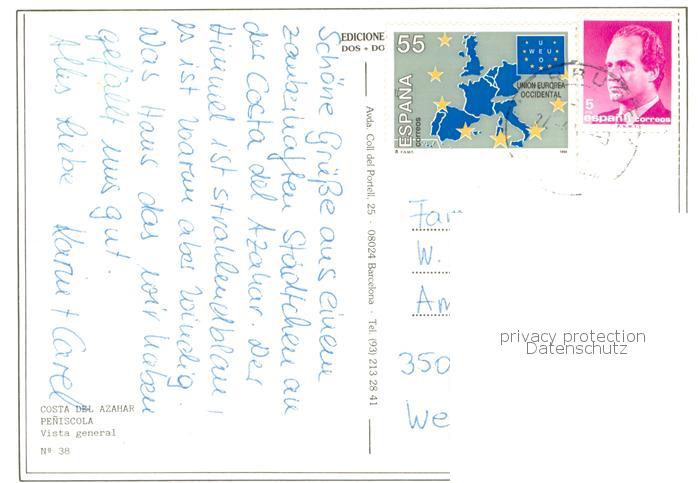 Schöne Grüße aus einem
zauberhaften Städtchen an
der Costa del Azahar. Der
Himmel ist strahlendblau,
es ist warm aber windig.
Das Haus das wir haben
gefällt uns gut.
Alles Liebe Karin + Carel
COSTA DEL AZAHAR
PEÑISCOLA
Vista general
Nº 38
EDICIONE
DOS + DO
Avda. Coll del Portell, 25 · 08024 Barcelona · Tel. (93) 213 28 41
55
ESPAÑA
correos
UNION EUROPEA
OCCIDENTAL
U
W E U
O
5
españa correos
Fam
W.
Am
350
We
privacy protection
Datenschutz